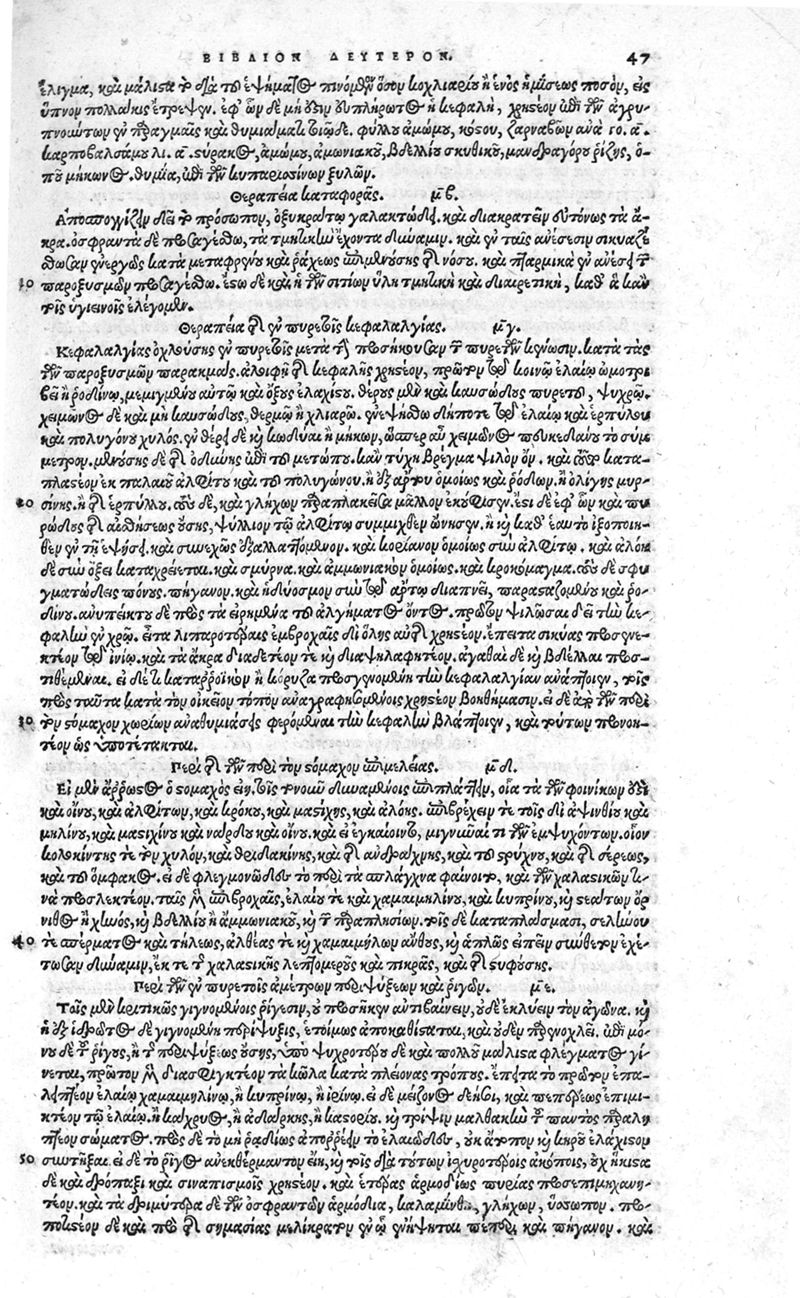 ΒΙΒΛΙΟΝ ΔΕΥΤΕΡΟΝ. 47
ἔλιγμα, καὶ μάλιστα τὸ διὰ τοῦ ἑψήματος πινόμενον ὅσον κοχλιαρίου ἢ ἑνὸς ἡμίσεως ποσὸν, εἰς
ὕπνον πολλάκις ἔτρεψεν. ἐφ' ὧν δὲ μὴ ᾖ συμπλήρωτος ἡ κεφαλὴ, χρηστέον ἐπὶ τῶν ἀγρυ-
πνούντων ἐν πράγμασι καὶ θυμιάματι τῷδε. φύλλου ἀμώμου, κόστου, ζαρναβῶν ἀνὰ γο. α.
καρποβαλσάμου λι. α. στύρακος, ἀμώμου, ἀμωνιακοῦ, βδελλίου σκυθικοῦ, μανδραγόρου ῥίζης, ὀ-
ποῦ μήκωνος. θυμία, ἐπὶ τῶν κυπαρισσίνων ξυλῶν.
Θεραπεία καταφορᾶς. μβ.
Ἀποσπογγίζειν δεῖ τὸ πρόσωπον, ὀξυκράτῳ γαλακτώδει. καὶ διακρατεῖν εὐτόνως τὰ ἄ-
κρα. ὀσφραντὰ δὲ προσαγέσθω, τὰ τμητικὴν ἔχοντα δύναμιν. καὶ ἐν ταῖς ἀνέσεσιν σικυαζέ
σθωσαν ἐνεργῶς κατὰ μεταφρένου καὶ ῥάχεως ἐπιμενούσης τῆς νόσου. καὶ πταρμικὰ ἐν ἀνέσει τῶν
10 παροξυσμῶν προσαγέσθω. ἔστω δὲ καὶ ἡ τῶν σιτίων ὕλη τμητικὴ καὶ διαιρετικὴ, καθ' ἃ κἀν
τοῖς ὑγιεινοῖς ἐλέγομεν.
Θεραπεία τῆς ἐν πυρετοῖς κεφαλαλγίας. μγ.
Κεφαλαλγίας ὀχλούσης ἐν πυρετοῖς μετὰ τὴν προσήκουσαν τῶν πυρετῶν κένωσιν. κατὰ τὰς
τῶν παροξυσμῶν παρακμὰς. ἀλοιφῇ τῆς κεφαλῆς χρηστέον, πρῶτον μὲν κοινῷ ἐλαίῳ ὠμοτρι
βεῖ ἢ ῥοδίνῳ, μεμιγμένου αὐτῷ καὶ ὄξους ἐλαχίστου. θέρους μὲν καὶ καυσώδους πυρετοῦ, ψυχρῷ.
χειμῶνος δὲ καὶ μὴ καυσώδους, θερμῷ ἢ χλιαρῷ. ἐνεψήσθω δήποτε τῷ ἐλαίῳ καὶ ἑρπύλου
καὶ πολυγόνου χυλός. ἐν θέρει δὲ κὴ κωδύαι ἢ μήκων, ὥσπερ αὖ χειμῶνος πευκεδάνου τὸ σύμ
μετρον. μενούσης δὲ τῆς ὀδύνης ἐπὶ τοῦ μετώπου. κἂν τύχῃ βρέγμα ψιλὸν ὂν. καὶ τοῦτο κατα-
πλαστέον ἐκ παλαιοῦ ἀλφίτου καὶ τοῦ πολυγώνου. ἢ ἐξ ἄρτου ὁμοίως καὶ ῥοδίων. ἢ ὀλίγης μυρ-
20 σίνης. ἢ τῆς ἑρπύλλου. τοῦ δὲ, καὶ γλήχων παραπλακεῖσα μᾶλλον ἐκούφισεν. ἔστι δὲ ἐφ' ὧν καὶ πυ
ρώδους τῆς αἰσθήσεως οὔσης, ψύλλιον τῷ ἀλφίτῳ συμμιχθὲν ὤνησεν. ἢ καὶ καθ' ἑαυτὸ ἐξοποιη-
θὲν ἐν τῇ ἑψήσει. καὶ συνεχῶς ἐξαλλαττόμενον. καὶ κορίανον ὁμοίως σὺν ἀλφίτῳ. καὶ ἀλόη
δὲ σὺν ὄξει καταχρίεται. καὶ σμύρνα. καὶ ἀμμωνιακὸν ὁμοίως. καὶ κροκόμαγμα. τοὺς δὲ σφυ
γματώδεις πόνους. πήγανον. καὶ ἡδύοσμον σὺν τῷ ἄρτῳ διαπνεῖ, παραστάζομένου καὶ ῥο-
δίνου. ἀνυπείκτου δὲ πρὸς τὰ εἰρημένα τοῦ ἀλγήματος ὄντος. πρῶτον ψιλῶσαι δεῖ τὴν κε-
φαλὴν ἐν χρῷ. εἶτα λιπαρωτέραις ἐμβροχαῖς δι' ὅλης αὐτῆς χρηστέον. ἔπειτα σικύας προσενε-
κτέον τῷ ἰνίῳ. καὶ τὰ ἄκρα διαδετέον τε καὶ διαψηλαφητέον. ἀγαθαὶ δὲ καὶ βδέλλαι προσ-
τιθέμεναι. εἰ δέ τι καταρροϊκὸν ἢ κόρυζα προσγενομένη τὴν κεφαλαλγίαν ἀνάπτοιεν, τοῖς
πρὸς ταῦτα κατὰ τὸν οἰκεῖον τόπον ἀναγραφησομένοις χρηστέον βοηθήμασιν. εἰ δὲ ἀπὸ τῶν περὶ
30 τὸν στόμαχον χωρίων ἀναθυμιάσεις φερόμεναι τὴν κεφαλὴν βλάπτοιεν, καὶ τούτων προνοη-
τέον ὡς ὑποτέτακται.
Περὶ τῆς τῶν περὶ τὸν στόμαχον ἐπιμελείας. μδ.
Εἰ μὲν ἄρρωστος ὁ στόμαχος εἴη, τοῖς τονοῦν δυναμένοις ἐπιπλάττειν, οἷα τὰ τῶν φοινίκων ἐστὶ
καὶ οἴνου, καὶ ἀλφίτων, καὶ κρόκου, καὶ μαστίχης, καὶ ἀλόης. ἐπιβρέχειν τε τοῖς δι' ἀψινθίου καὶ
μηλίνου, καὶ μαστιχίνου καὶ νάρδου καὶ οἴνου. καὶ εἰ ἐγκαίοιντο, μιγνύναι τι τῶν ἐμψυχόντων. οἷον
κολοκύντης τε τὸν χυλὸν, καὶ θριδακίνης, καὶ τῆς ἀνδράχνης, καὶ τοῦ στρύχνου, καὶ τῆς σέρεως,
καὶ τοῦ ὄμφακος. εἰ δὲ φλεγμονῶδες τὸ περὶ τὰ σπλάγχνα φαίνοιτο, καὶ τῶν χαλαστικῶν τι-
νὰ προσλεκτέον. ταῖς μὲν ἐπιβροχαῖς, ἐλαίου τε καὶ χαμαιμηλίνου, καὶ κυπρίνου, καὶ στεάτων ὀρ
νίθος ἢ χηνὸς, καὶ βδελλίου ἢ ἀμμωνιακοῦ, καὶ τῶν παραπλησίων. τοῖς δὲ καταπλάσμασι, σελίνου
40 τε σπέρματος καὶ τήλεως, ἀλθέας τε καὶ χαμαιμήλων ἄνθους, καὶ ἁπλῶς εἰπεῖν σύνθετον ἐχέ-
τωσαν δύναμιν, ἔκ τε τῆς χαλαστικῆς λεπτομεροῦς καὶ πικρᾶς, καὶ τῆς στυφούσης.
Περὶ τῶν ἐν πυρετοῖς ἀμέτρων περιψύξεων καὶ ῥιγῶν. με.
Τοῖς μὲν κριτικῶς γιγνομένοις ῥίγεσιν, οὐ προσῆκεν ἀντιβαίνειν, οὐδὲ ἐκλύειν τὸν ἀγῶνα. καὶ
ἡ ἐξ ἱδρῶτος δὲ γιγνομένη περίψυξις, ἑτοίμως ἀποκαθίσταται, καὶ οὐδὲν παρενοχλεῖ. ἐπὶ μό-
νου δὲ τοῦ ῥίγους, ἢ τῆς περιψύξεως οὔσης, ὑπὸ ψυχροτέρου δὲ καὶ πολλοῦ μάλιστα φλέγματος γί-
νεται, πρῶτον μὲν διασφιγκτέον τὰ κῶλα κατὰ πλείονας τρόπους. ἔπειτα τὸ πρῶτον ἐπα-
λειπτέον ἐλαίῳ χαμαιμηλίνῳ, ἢ κυπρίνῳ, ἢ ἰρίνῳ. εἰ δὲ μείζονος δέησοι, καὶ πεπέρεως ἐπιμι-
κτέον τῷ ἐλαίῳ. ἢ κάχρυος, ἢ ἀδάρκης, ἢ καστορίου. καὶ τρίψιν μαλθακὴν τοῦ παντὸς παραλη
πτέον σώματος. πρὸς δὲ τὸ μὴ ῥαδίως ἀπορρέειν τὸ ἐλαιῶδες, οὐκ ἄτοπον καὶ κηροῦ ἐλάχιστον
50 συντῆξαι. εἰ δὲ τὸ ῥῖγος ἀνεκθέρμαντον εἴη, καὶ τοῖς διὰ τούτων ἰσχυροτέροις ἀκόποις, οὐχ ἥκιστα
δὲ καὶ δρόπαξι καὶ σιναπισμοῖς χρηστέον. καὶ ἑτέρας ἁρμοδίως πυρίας προσεπιμηχανη-
τέον. καὶ τὰ δριμύτερα δὲ τῶν ὀσφραντῶν ἁρμόδια, καλαμίνθα, γλήχων, ὕσσωπον. προ-
ποτιστέον δὲ καὶ πρὸ τῆς σημασίας μελίκρατον ἐν ᾧ ἐνήψηται πέπερι καὶ πήγανον. καὶ